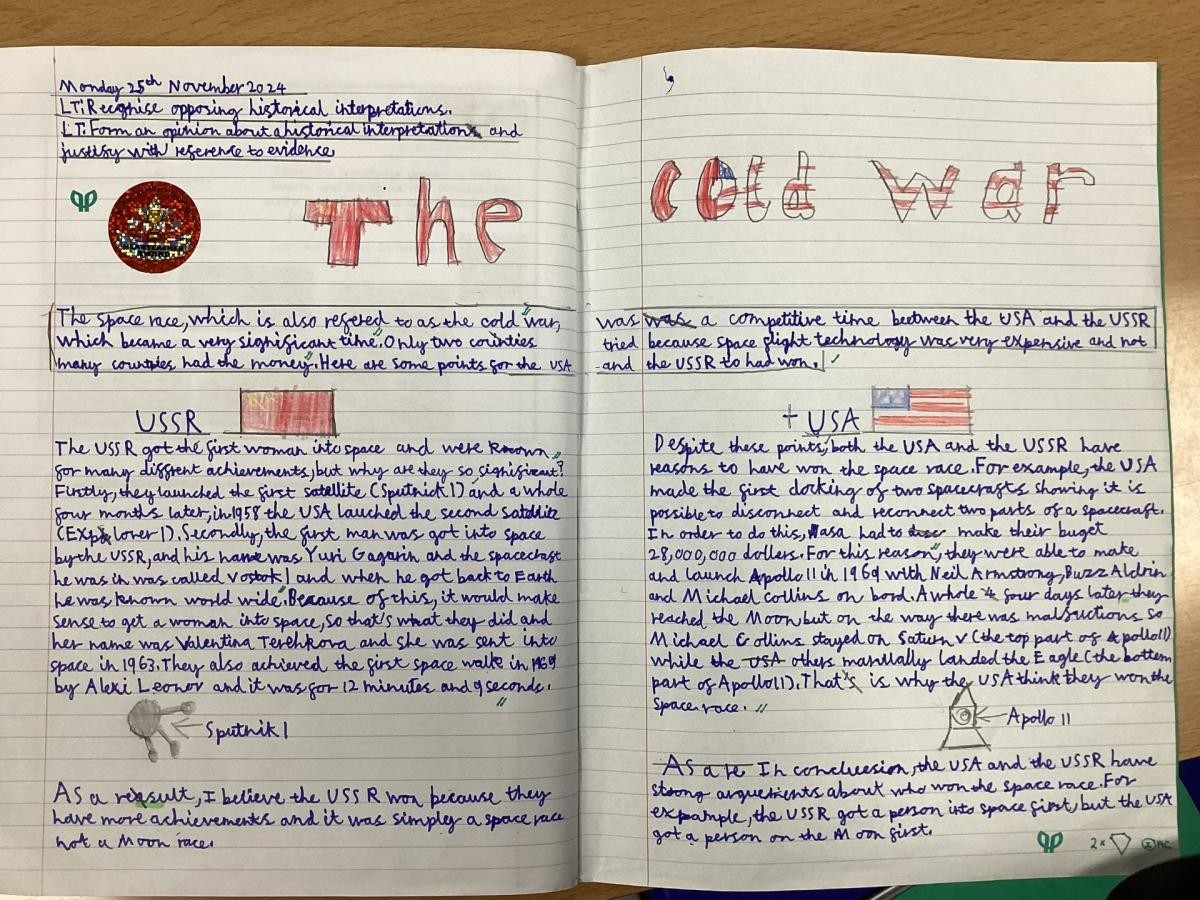 Monday 25th November 2024
LT: Recognise opposing historical interpretations.
LT: Form an opinion about a historical interpretations and
justify with reference to evidence
The Cold War
The space race, which is also refered to as the cold war, was was a competitive time beetween the USA and the USSR
which became a very significant time. Only two counties tried because space flight technology was very expensive and not
many countries had the money. Here are some points for the USA and the USSR to had won.
USSR
The USSR got the first woman into space and were known
for many diffrent achievements, but why are they so significant?
Firstly, they launched the first satellite (Sputnick 1) and a whole
four months later, in 1958 the USA lauched the second satellite
(Explorer 1). Secondly, the first man was got into space
by the USSR, and his name was Yuri Gagarin and the spacecraft
he was in was called Vostok 1 and when he got back to Earth
he was known world wide. Because of this, it would make
sense to get a woman into space, so that's what they did and
her name was Valentina Terehkova and she was sent into
space in 1963. They also achieved the first space walk in
by Alexi Leonov and it was for 12 minutes and 9 seconds.
Sputnik 1
As a reasult, I believe the USSR won because they
have more achievements and it was simply a space race
not a Moon race.
+ USA
Despite these points, both the USA and the USSR have
reasons to have won the space race. For example, the USA
made the first docking of two spacecrafts showing it is
possible to disconnect and reconnect two parts of a spacecraft.
In order to do this, Nasa had to make their buget
28,000,000 dollars. For this reason, they were able to make
and launch Apollo 11 in 1969 with Neil Armstrong, Buzz Aldrin
and Michael collins on bord. A whole 4 four days later they
reached the Moon but on the way there was malfuctions so
Michael Collins stayed on Saturn V (the top part of Apollo 11)
while the USA others manually landed the Eagle (the bottem
part of Apollo 11). That's is why the USA think they won the
space race.
Apollo 11
As a re In conclusion, the USA and the USSR have
strong arguements about who won the space race. For
expample, the USSR got a person into space first, but the USA
got a person on the Moon first.
2x